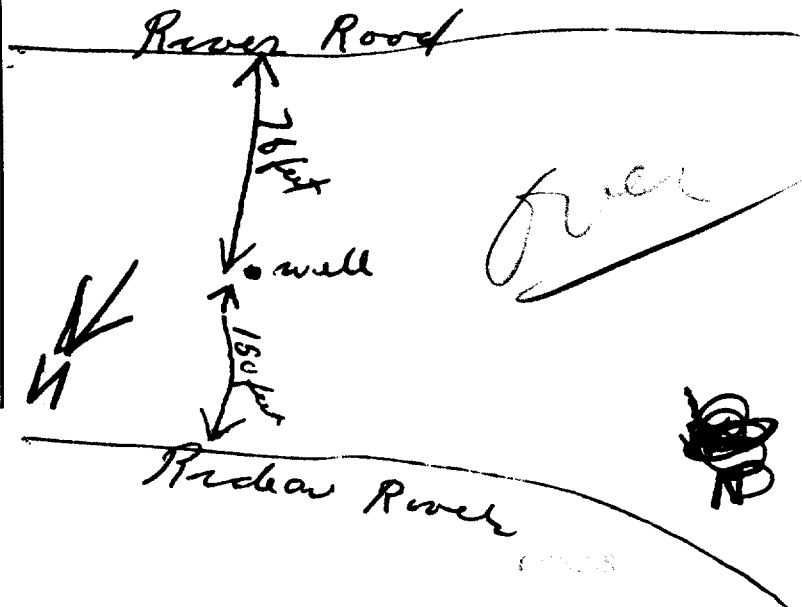 River Road
75 feet
well
150 feet
N
Rideau River